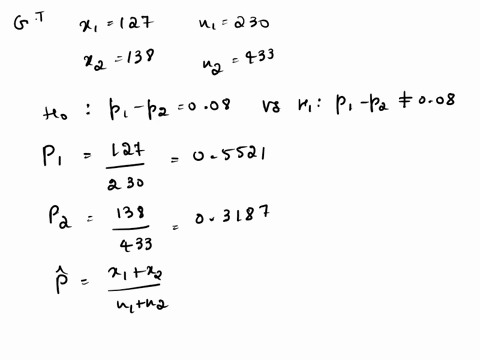 G.T x₁ = 127 n₁ = 230
x₂ = 138 n₂ = 433
H₀ : p₁ - p₂ = 0.08 vs H₁ : p₁ - p₂ ≠ 0.08
P₁ = 127/230 = 0.5521
P₂ = 138/433 = 0.3187
P̂ = x₁+x₂/n₁+n₂